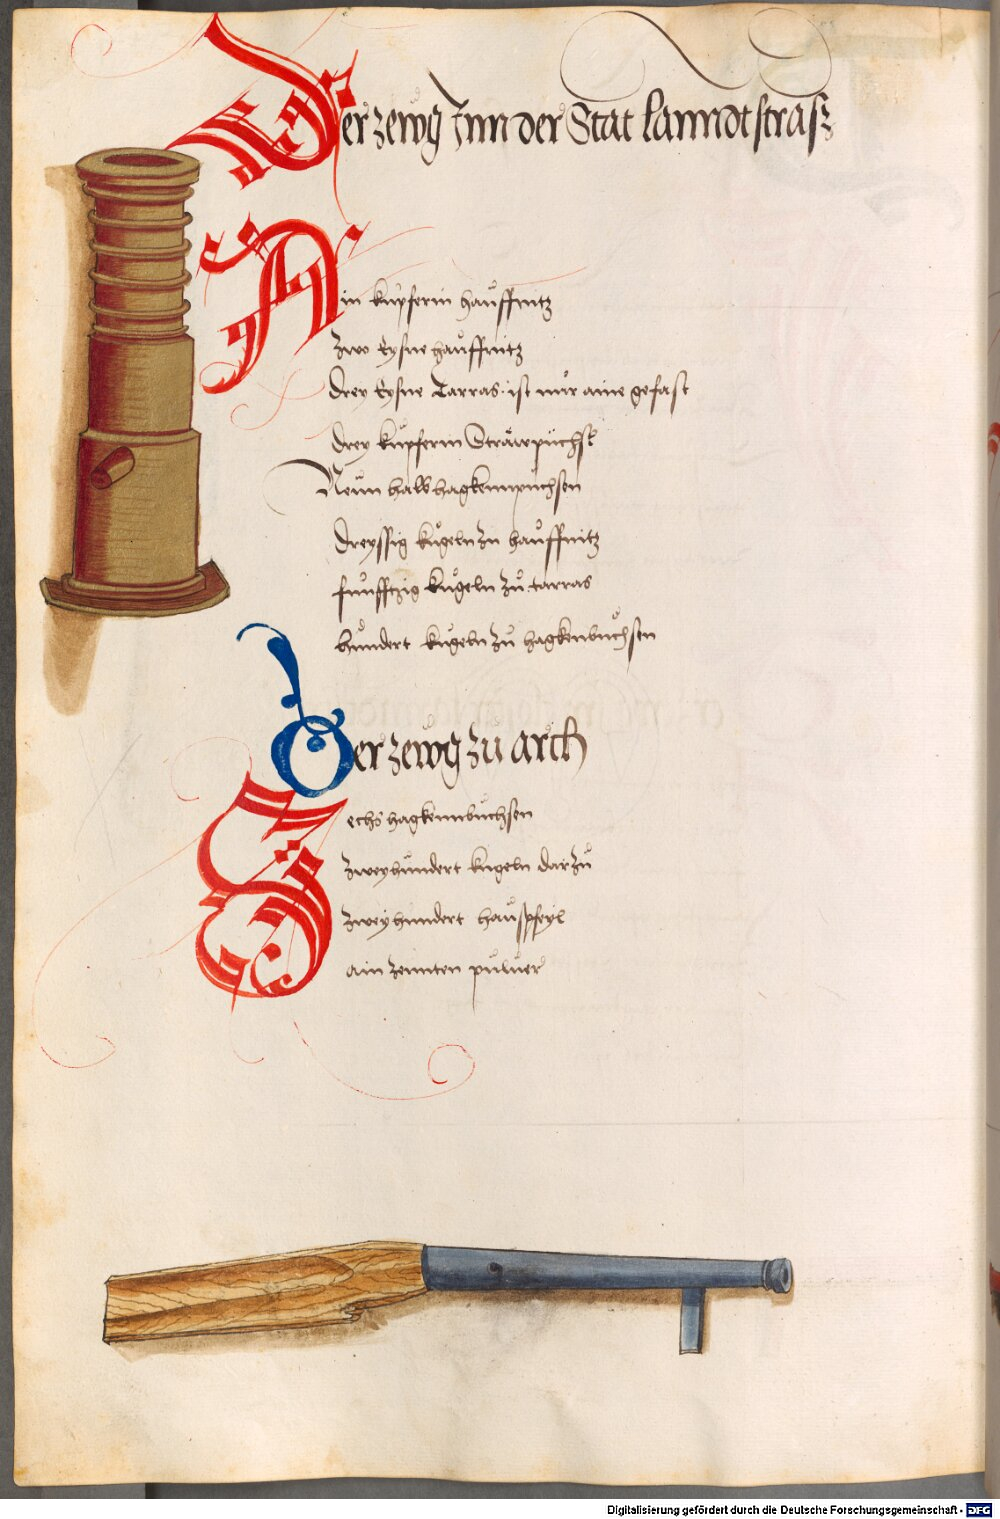 Der zewg Inn der Stat lanndtstrasz
Ain kupferin hauffnitz
zwo Eysne hauffnitz
drey Eysne Tarras ist nur aine gefast
drey kupferin Straupüchsz
Neun halb hagkennpüchsen
dreyssig kugeln zu hauffnitz
funfftzig kugeln zu tarras
hundert kugeln zu hagkenbuchsen
Der zewg zu arch
Sechs hagkennbuchsen
zweyhundert kugeln darzu
zweyhundert hauspfeyl
ain zenntten puluer
Digitalisierung gefördert durch die Deutsche Forschungsgemeinschaft - DFG